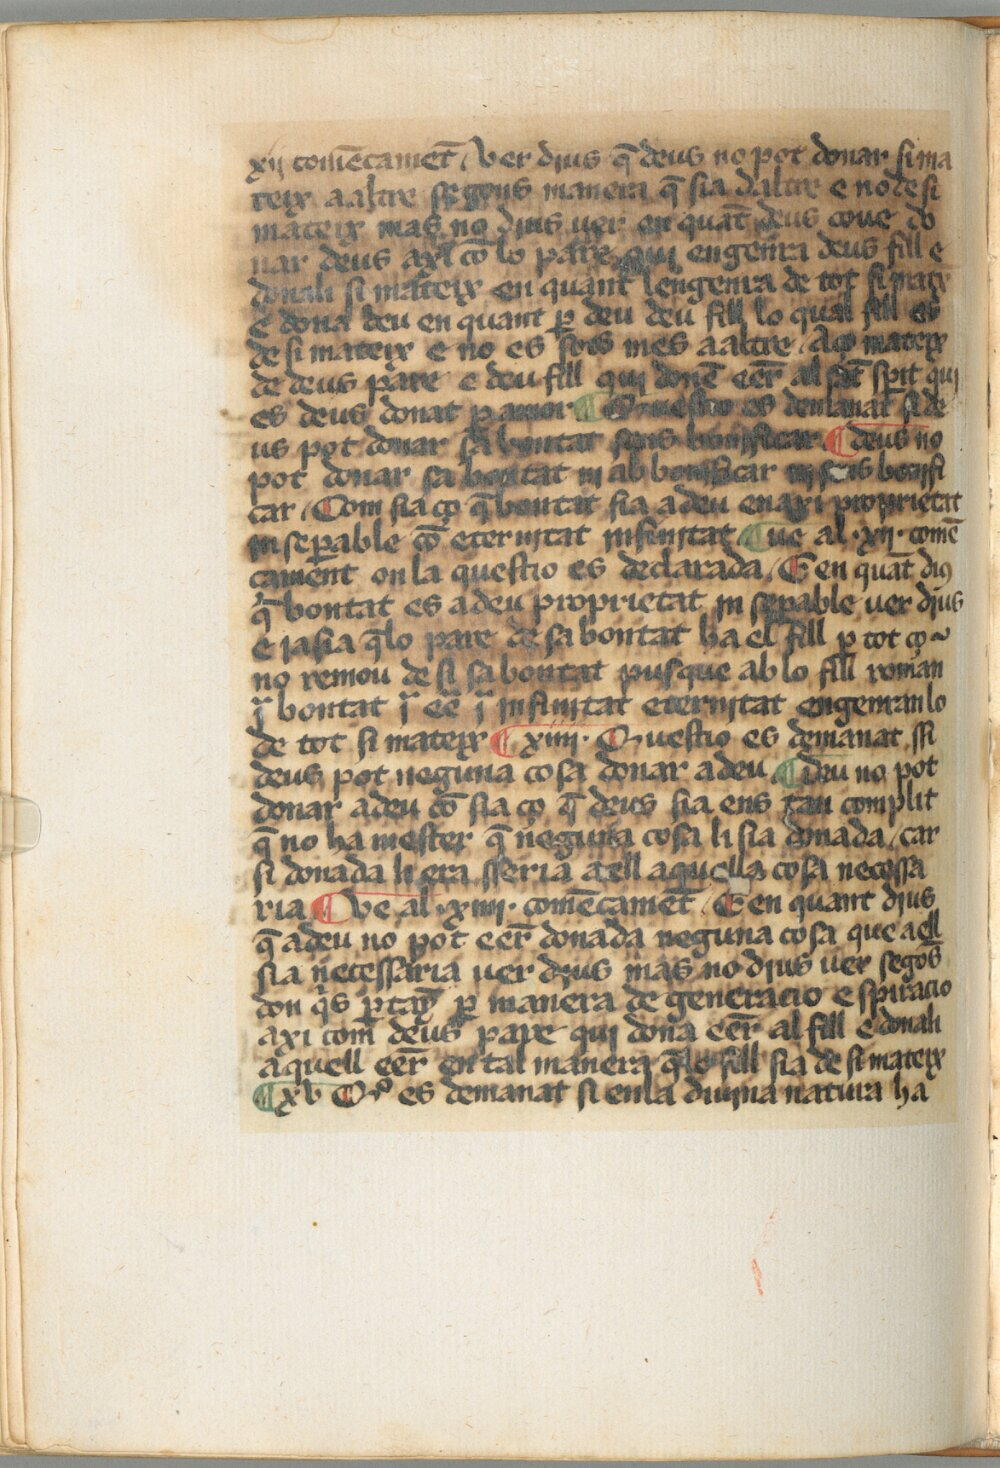 xij comēcamēt / Ver dius q̄ deus no pot donar si ma
teix a altre segons manera q̄ sia daltre e no de si
mateix mas no dius ver en quāt deus coue do
nar deus axi cō lo pare qui engenra deus fill e
donali si mateix en quant lengenra de tot si mateix
e dona deu en quant ꝑ deu deu fill lo qual fill es
de si mateix e no es mes a altre / Aço mateix
de deus pare e deu fill qui donē eēr al sāt spīt qui
es deus donat ꝑ amor ¶ Questio es demanat si de
us pot donar sa bontat sens bonificar ¶ deus no
pot donar sa bontat ni ab bonificar ni sens bonifi
car / Com sia ço q̄ bontat sia a deu en axi proprietat
inseꝑable cō eternitat infinitat ¶ Ve al · xij · comē
cament on la questio es declarada / E en quāt dius
q̄ bontat es a deu proprietat inseꝑable ver dius
e ja sia q̄ lo pare de sa bontat ha el fill ꝑ tot ço
no remou de si sa bontat pusque ab lo fill roman
ī bontat ī eē ī infinitat eternitat engenran lo
de tot si mateix ¶ xiiij · Questio es demanat ssi
deus pot neguna cosa donar a deu ¶ deu no pot
donar a deu cō sia ço q̄ deus sia ens tan complit
q̄ no ha mester q̄ neguna cosa li sia donada / car
si donada li era sseria a ell aquella cosa necessa
ria ¶ Ve al · xiiij · comēcamēt / E en quant dius
q̄ a deu no pot eēr donada neguna cosa que a ell
sia necessaria ver dius mas no dius ver segōs
don ꝑ manera de generacio e spiracio
axi com deus pare qui dona eēr al fill e donali
aquell eēr en tal manera q̄ lo fill sia de si mateix
¶ xv Qº es demanat si en la diuina natura ha